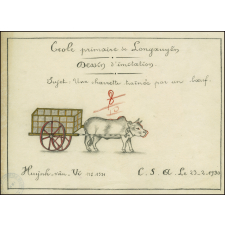 Ecole primaire de Longxuyên
Dessin d'imitation.
Sujet. Une charrette traînée par une bœuf.
Huỳnh-văn-Vô
C. S. A. Le 23.2.1930